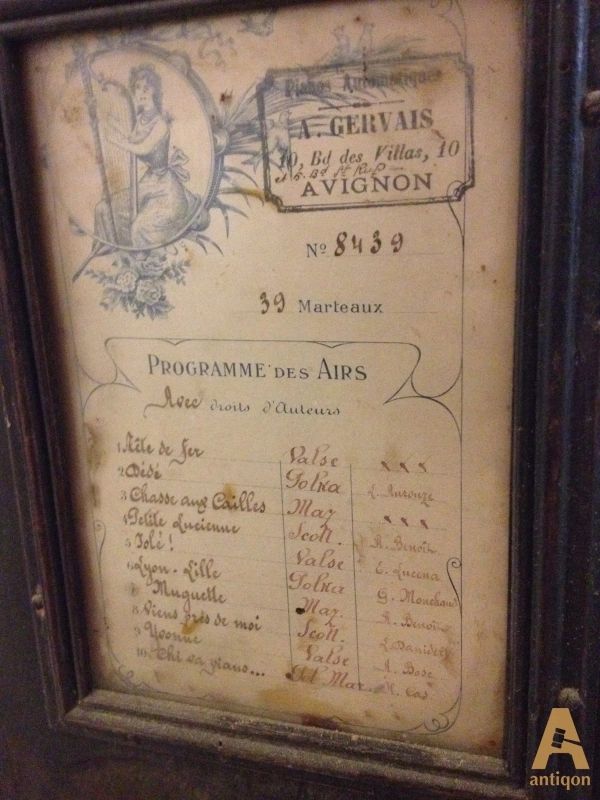 Pianos Automatiques
A. GERVAIS
10, Bd des Villas, 10
AVIGNON
Nº 8439
39 Marteaux
PROGRAMME DES AIRS
Avec droits d'Auteurs
1 Tête de Fer Valse " " "
2 Dédé Polka L. Antonze
3 Chasse aux Cailles Maz " " "
4 Petite Lucienne Scott. A. Benoît
5 Iolé! Valse E. Lucena
6 Lyon-Lille Polka G. Monchaud
7 Muguette Maz. A. Benoît
8 Viens près de moi Scott. L. Daniderff
9 Yvonne Valse A. Bosc
10 Chi va piano... Pet Mar. H. Cas
A
antiqon